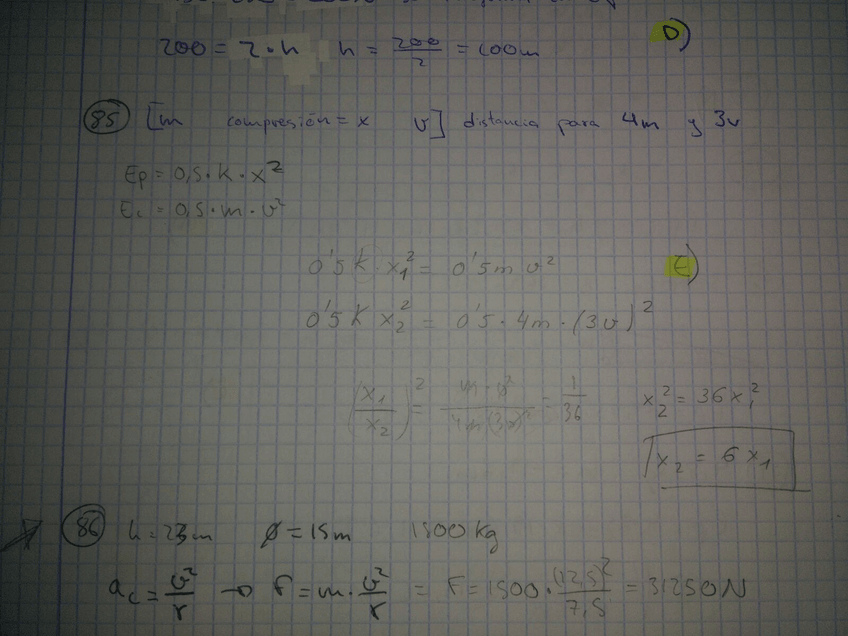 200 = 2 · h   h = 200/2 = 100m   D)
85 [m   compresión = x   v] distancia para 4m y 3v
Ep = 0,5 · k · x²
Ec = 0,5 · m · v²
0'5 K · x₁² = 0'5 m v²   E)
0'5 K x₂² = 0'5 · 4m · (3v)²
(x₁/x₂)² = m · v²/4m(3v)² = 1/36   x₂² = 36x₁²
x₂ = 6 x₁
86   h = 23m   ø = 15m   1500 Kg
ac = v²/r → F = m · v²/r = F = 1500 · (12,5)²/7,5 = 31250 N